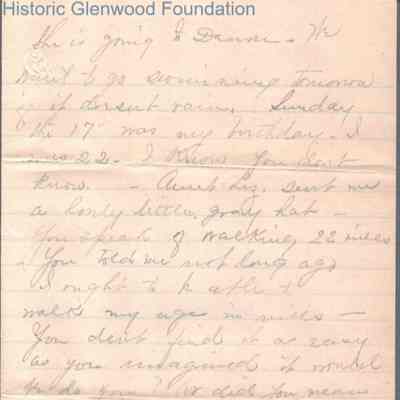 Historic Glenwood Foundation
She is going to Danse - We
want to go swimming tomorrow
if it doesnt rain. Sunday
the 17" was my birthday - I
was 22 - I know you dont
know. - Aunt Liz. sent me
a lovely little gray hat -
You speak of walking 22 miles
You told me not long ago
I ought to be able to
walk my age in miles -
You dont find it as easy
as you imagined it would
do you? or did you mean